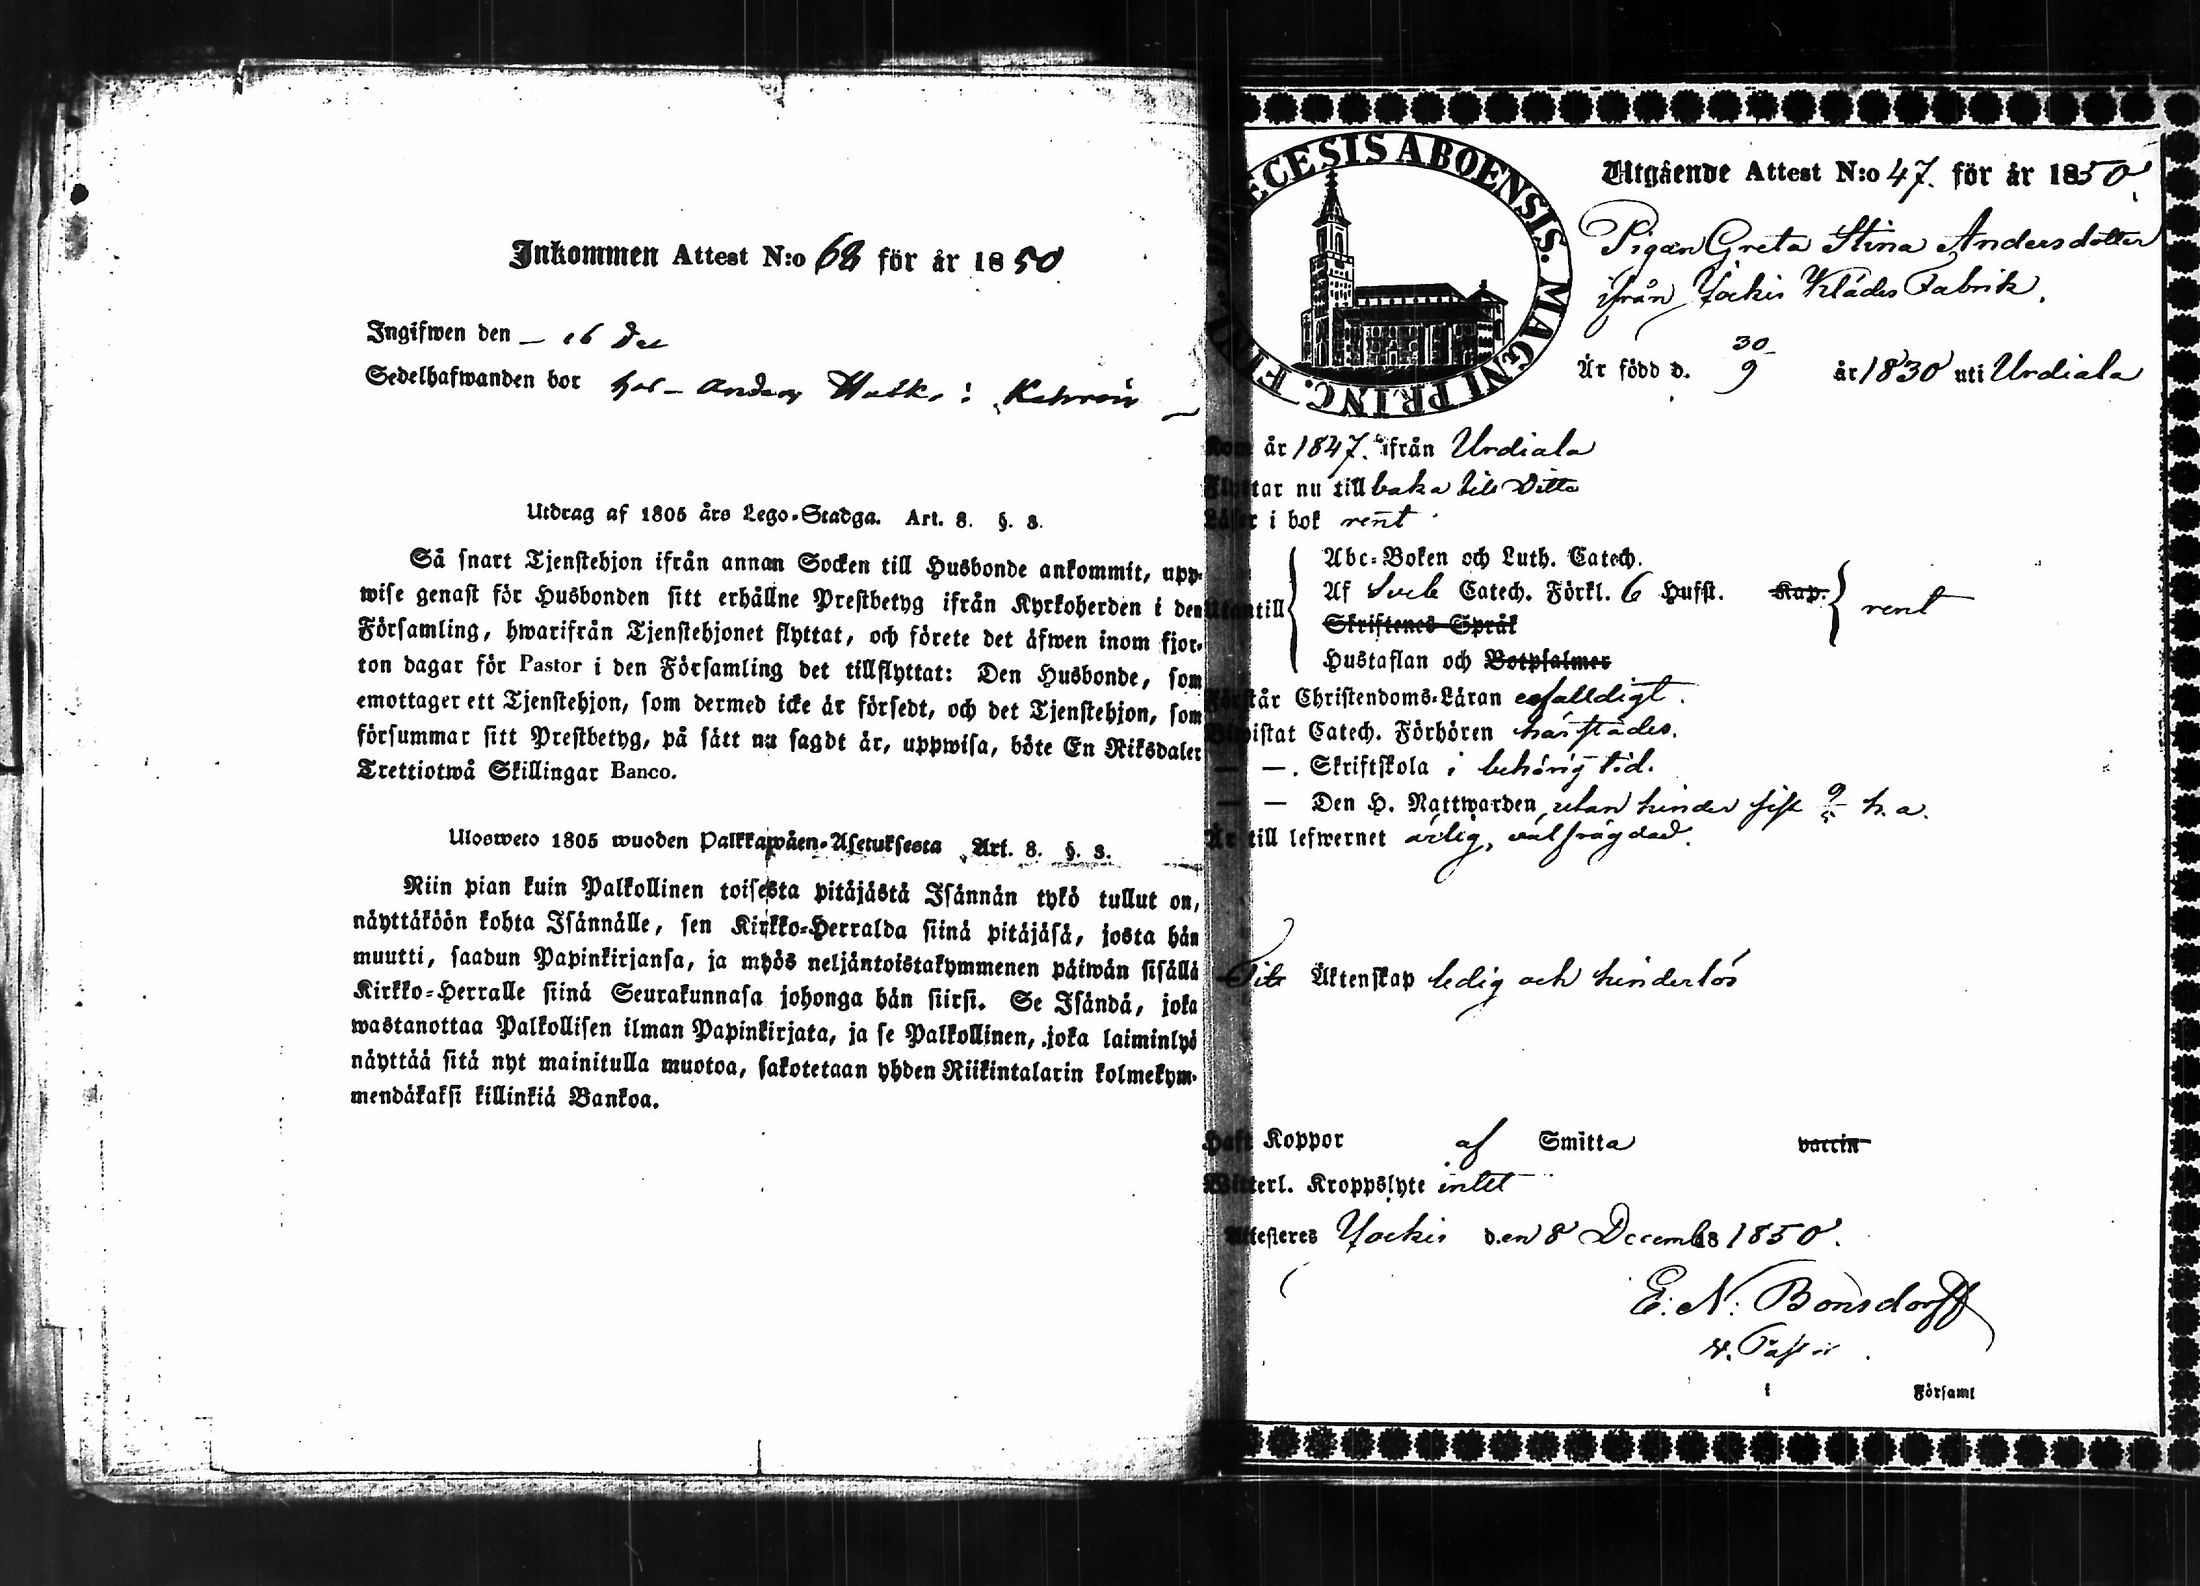 Inkommen Attest N:o 68 för år 1850
Ingifwen den — 16 Dec
Sedelhafwanden bor hos Anders i
Utdrag af 1805 års Lego-Stadga. Art. 8. §. 3.
Så snart Tjenstehjon ifrån annan Socken till Husbonde ankommit, upp-
wise genast för Husbonden sitt erhållne Prestbetyg ifrån Kyrkoherden i den
Församling, hwarifrån Tjenstehjonet flyttat, och förete det äfwen inom fjor-
ton dagar för Pastor i den Församling det tillflyttat: Den Husbonde, som
emottager ett Tjenstehjon, som dermed icke är försedt, och det Tjenstehjon, som
försummar sitt Prestbetyg, på sätt nu sagdt är, uppwisa, böte En Riksdaler
Trettiotwå Skillingar Banco.
Ulosweto 1805 wuoden Palkkawäen-Asetuksesta Art. 8. §. 3.
Niin pian kuin Palkollinen toisesta pitäjästä Isännän tykö tullut on,
näyttäköön kohta Isännälle, sen Kirkko-Herralda siinä pitäjäsä, josta hän
muutti, saadun Papinkirjansa, ja myös neljäntoistakymmenen päiwän sisällä
Kirkko-Herralle siinä Seurakunnasa johonga hän siirsi. Se Isändä, joka
wastanottaa Palkollisen ilman Papinkirjata, ja se Palkollinen, joka laiminlyö
näyttää sitä nyt mainitulla muotoa, sakotetaan yhden Riikintalarin kolmekym-
mendäkaksi killinkiä Bankoa.
ECESIS ABOENSIS. MAGNI PRINC. FINL.
Utgående Attest N:o 47. för år 1850.
Pigan Greta Stina Andersdotter
ifrån Jockis Klädes Fabrik.
Är född d. 30/9 år 1830 uti Urdiala
Kom år 1847. ifrån Urdiala
Flyttar nu till baka till Ditto
Läser i bok rent
Utantill { Abc-Boken och Luth. Catech.
Af Sveb Catech. Förkl. 6 Hufst. Kap. } rent
Skriftenes Språk
Hustaflan och Botpsalmer
Förstår Christendoms-Läran enfalldigt.
Biwistat Catech. Förhören härstädes.
— —. Skriftskola i behörig tid.
— — Den H. Nattwarden utan hinder sist h. a.
Är till lefwernet ärlig, välfrägdad.
Till Äktenskap ledig och hinderlös
Haft Koppor af Smitta vaccin
Witterl. Kroppslyte intet
Attesteres Jockis den 8 Decemb 18 1850.
E. N. Bonsdorff
v. Pastor
i Församl